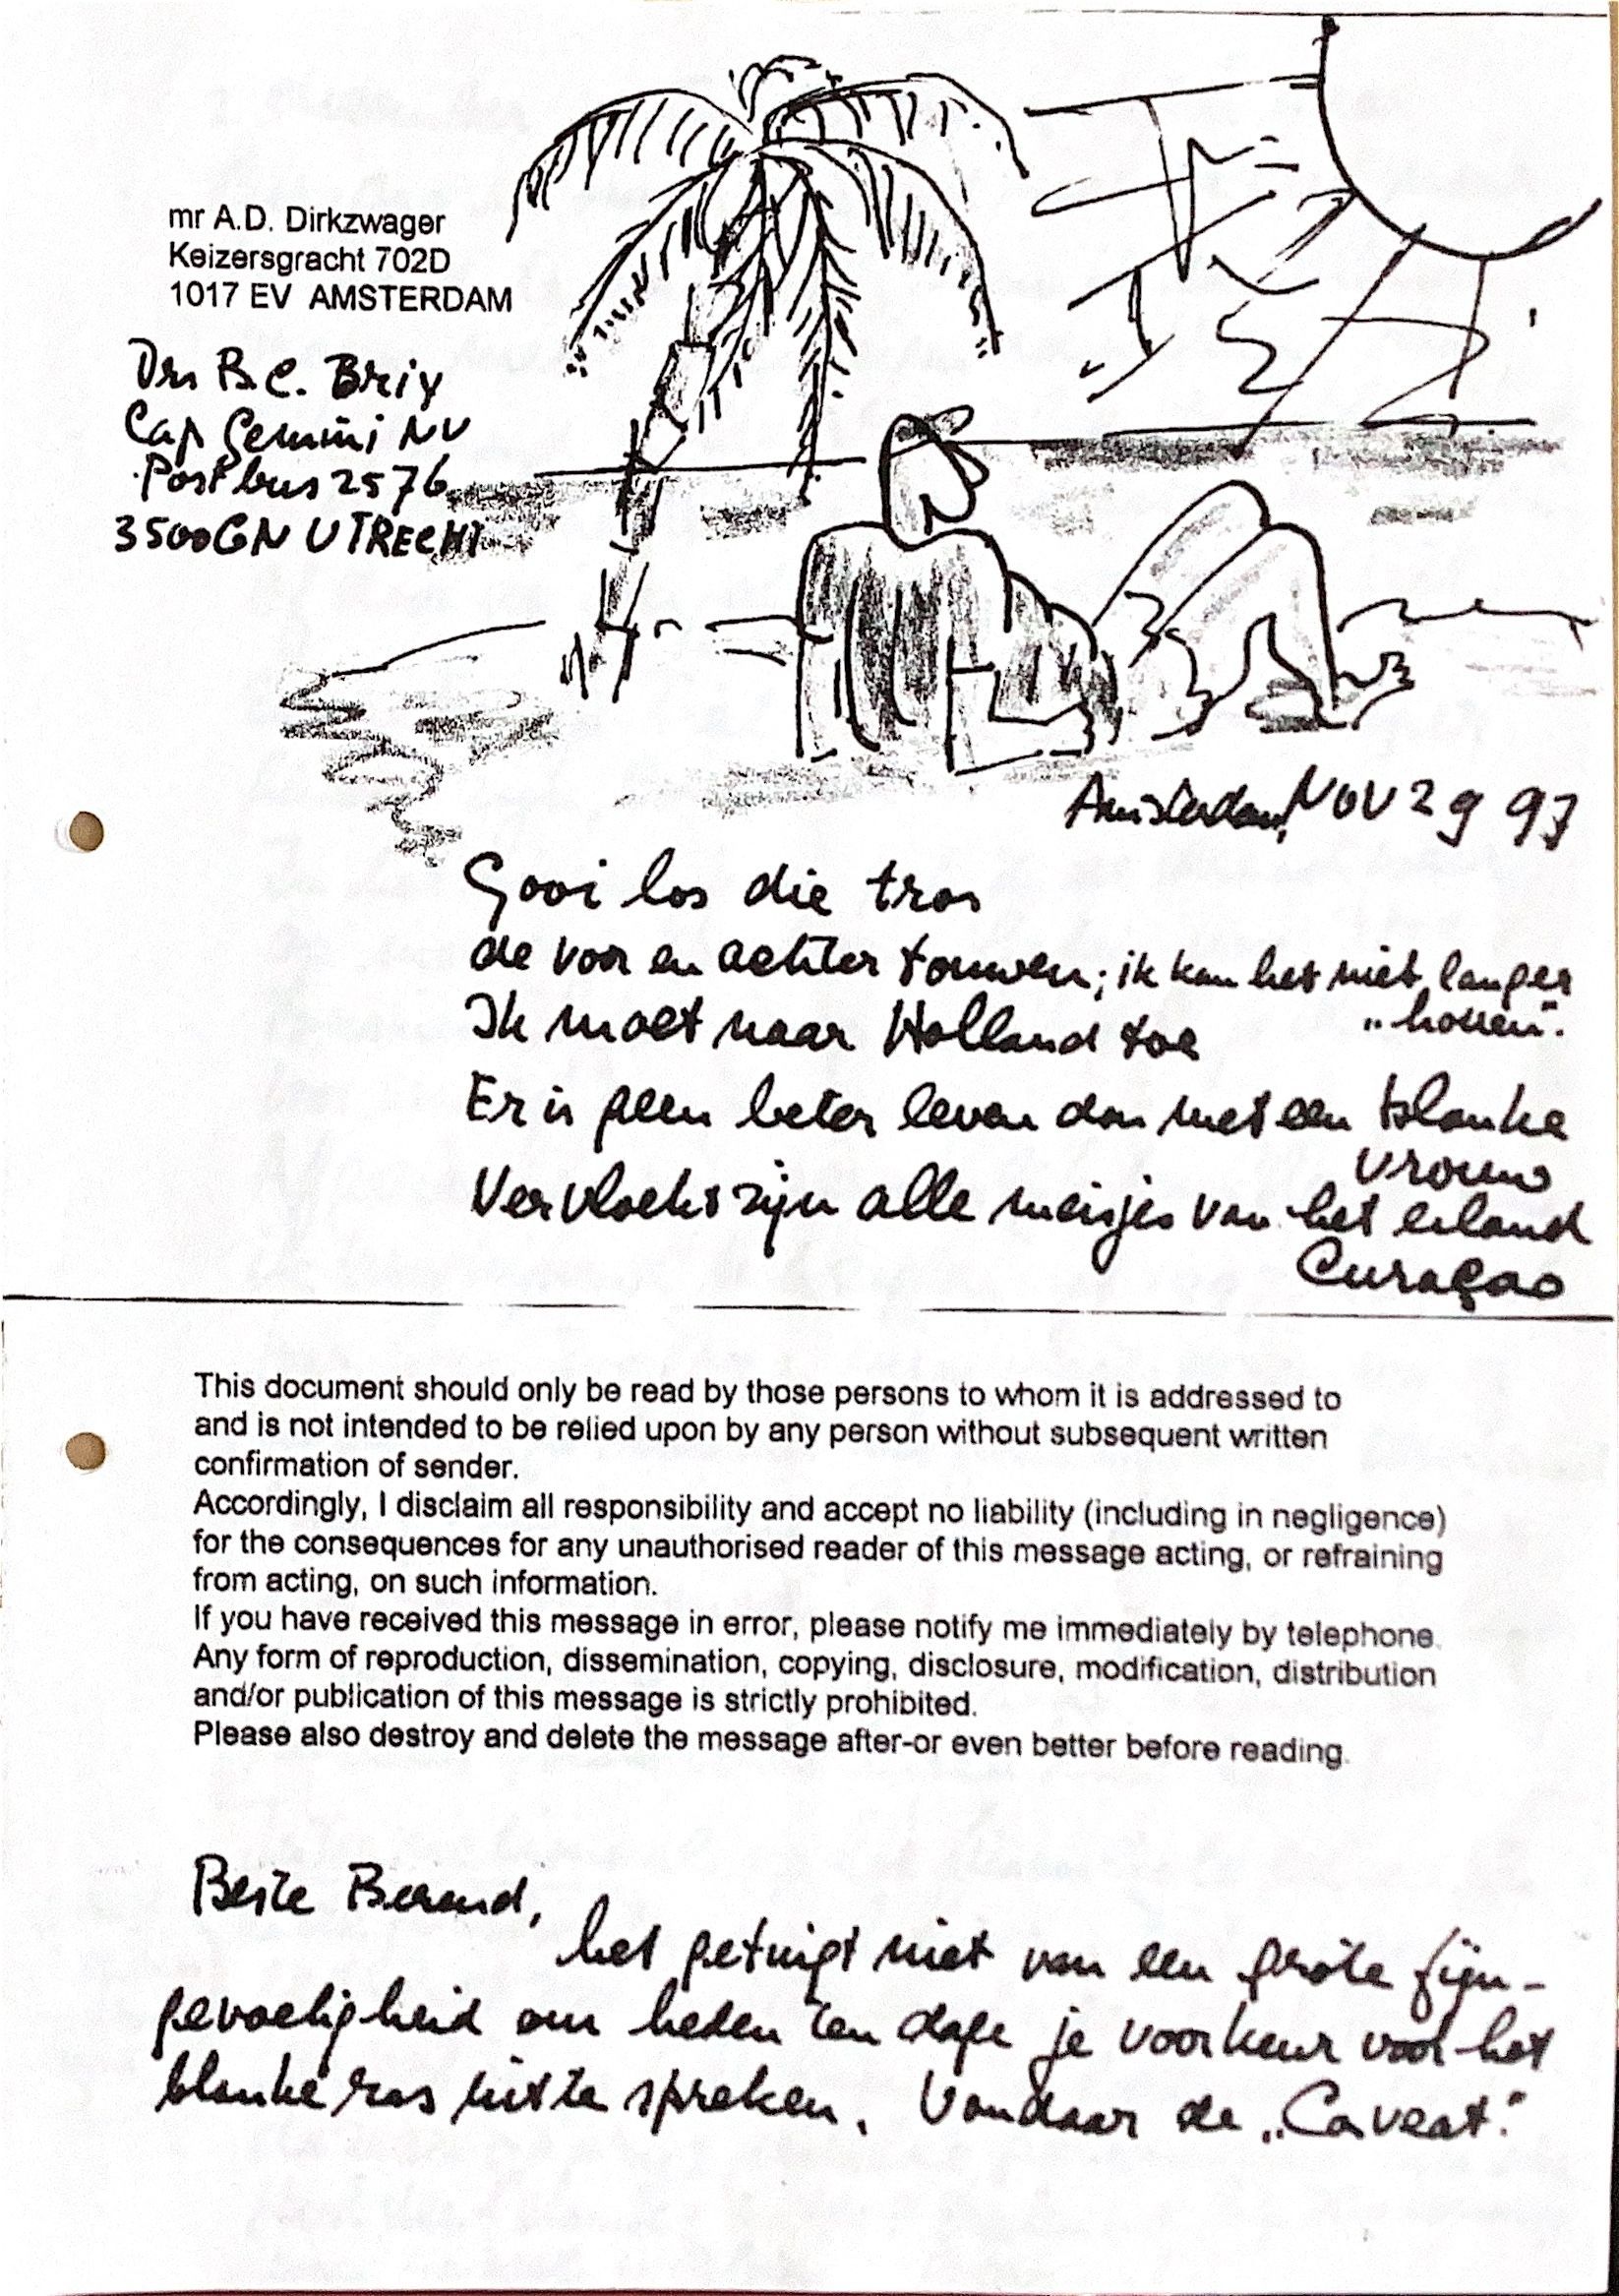 mr A.D. Dirkzwager
Keizersgracht 702D
1017 EV AMSTERDAM
Drs B.C. Brix
Cap Gemini NV
Postbus 2576
3500GN UTRECHT
Amsterdam, NOV 29 97
Gooi los die tros
de voor en achter touwen; ik kan het niet langer
„houen".
Ik moet naar Holland toe
Er is geen beter leven dan met een blanke
vrouw
Vervloekt zijn alle meisjes van het eiland
Curaçao
This document should only be read by those persons to whom it is addressed to
and is not intended to be relied upon by any person without subsequent written
confirmation of sender.
Accordingly, I disclaim all responsibility and accept no liability (including in negligence)
for the consequences for any unauthorised reader of this message acting, or refraining
from acting, on such information.
If you have received this message in error, please notify me immediately by telephone.
Any form of reproduction, dissemination, copying, disclosure, modification, distribution
and/or publication of this message is strictly prohibited.
Please also destroy and delete the message after-or even better before reading.
Beste Berend,
het getuigt niet van een grote fijn-
gevoeligheid om heden ten dage je voorkeur voor het
blanke ras uit te spreken. Vandaar de „Caveat."